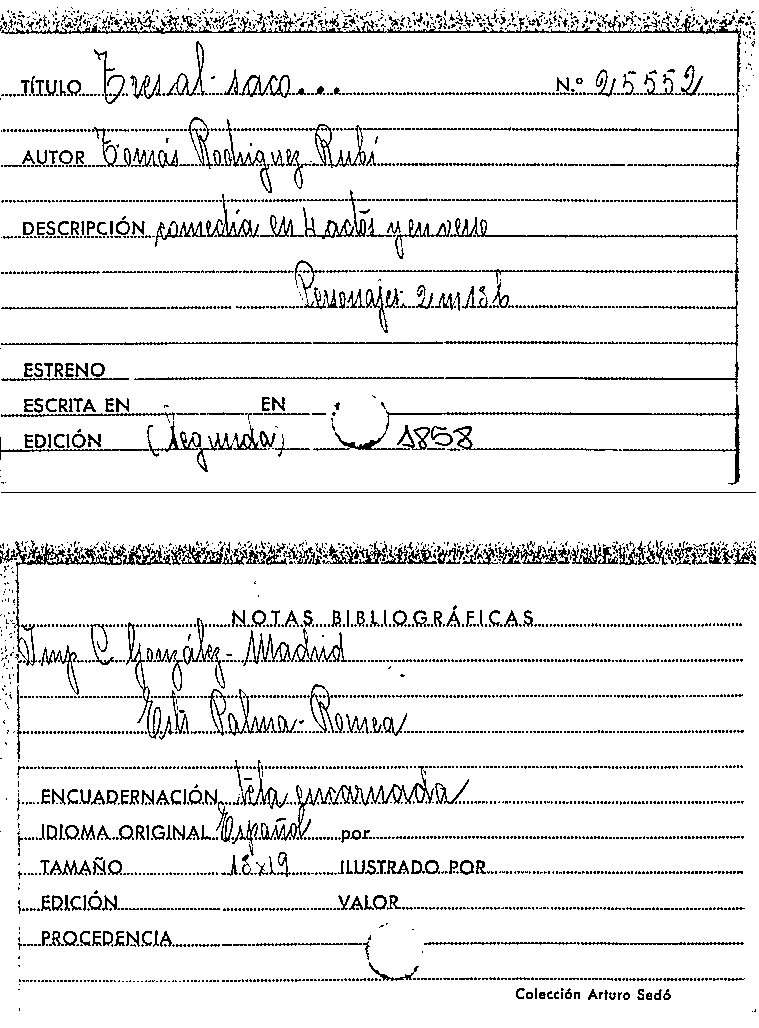 TÍTULO Tres al saco... N.º 25552
AUTOR Tomás Rodriguez Rubí
DESCRIPCIÓN comedia en 4 actos y en verso
Personajes 2 m 13 h
ESTRENO
ESCRITA EN EN
EDICIÓN (Segunda) 1858
NOTAS BIBLIOGRÁFICAS
Imp C. González - Madrid
Palma - Romea
ENCUADERNACIÓN tela encarnada
IDIOMA ORIGINAL Español por
TAMAÑO 13x19 ILUSTRADO POR
EDICIÓN VALOR
PROCEDENCIA
Colección Arturo Sedó